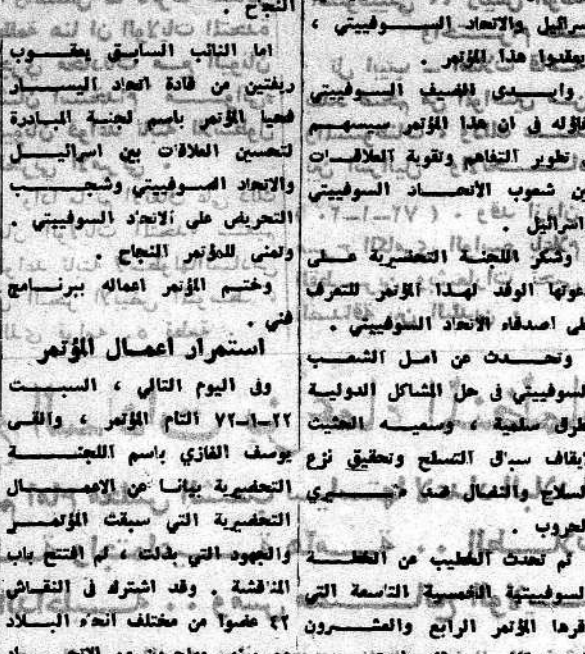 سرائيل والاتحاد السـوفييتي ،
يعقدوا هذا المؤتمر .
وابـدى الضيف السـوفييتي
فاؤله في ان هذا المؤتمر سيسهـم
تطوير التفاهم وتقوية العلاقـات
ن شعوب الاتحـاد السوفييتي
اسرائيل .
وشكر اللجنـة التحضيرية عـلى
عوتها الوفد لهـذا المؤتمر للتعرف
لى اصدقاء الاتحاد السوفييتي .
وتحـدث عن امـل الشعـب
لسوفييتي في حل المشاكل الدوليـة
طرق سلمية ، وسعيـه الحثيث
ايقاف سباق التسلح وتحقيق نزع
لسلاح والنضال ضد
لحروب .
ثم تحدث الخطيب عن الخطـة
لسوفييتية الخمسية التاسعة التي
قرها المؤتمر الرابع والعشـرون
النجاح .
اما النائب السابـق يعقـوب
ريفتين من قادة اتحاد اليسـار
فحيا المؤتمر باسم لجنـة المبـادرة
لتحسين العلاقات بين اسرائيـل
والاتحاد السـوفييتي وشجـب
التحريض على الاتحاد السوفييتي .
وتمنى للمؤتمر النجاح .
وختـم المؤتمر اعماله ببرنـامج
فني .
استمرار اعمـال المؤتمر
وفي اليوم التالي ، السبـت
٢٢ــ١ــ٧٢ التام المؤتمر ، والقـى
يوسف الغازي باسم اللجنـة
التحضيرية بيانـا عن الاعمـال
التحضيرية التي سبقت المؤتمـر
والجهود التي بذلت ، ثم افتتح باب
المناقشة . وقد اشترك في النقـاش
٤٢ عضوا من مختلف انحاء البـلاد